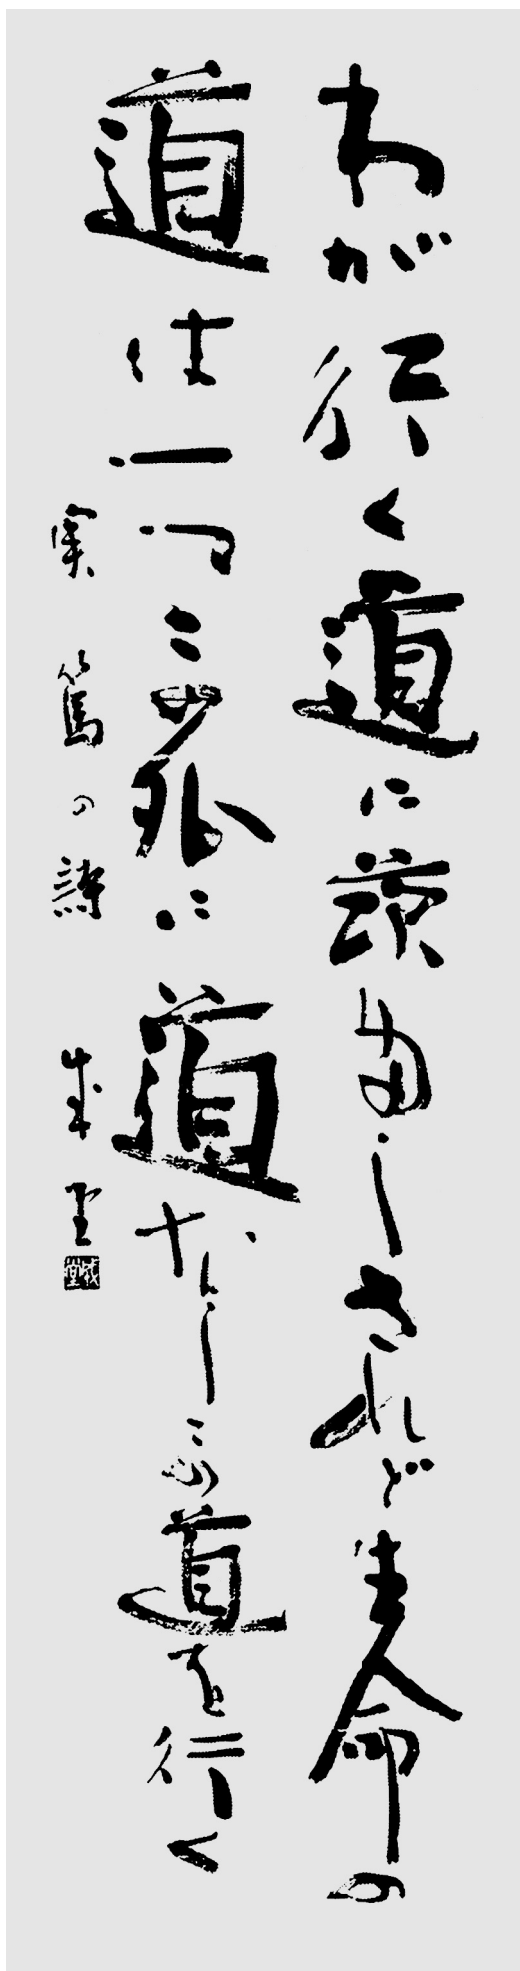 わが行く道に茨多しされど生命の
道は一つこの外に道なしこの道を行く
実篤の詩 成堂